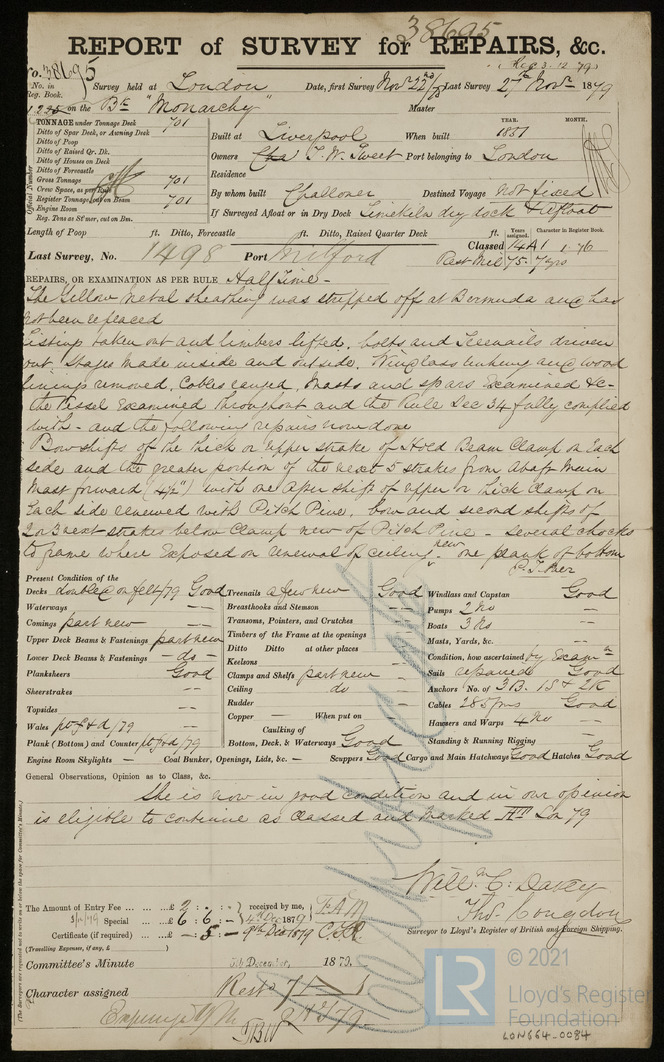 38695
REPORT of SURVEY for REPAIRS, &c.
No. 38695
Rec 3.12.79
No. in Reg. Book. Survey held at London Date, first Survey Novr 22nd/78 Last Survey 27th Novr 1879
on the Bk "Monarchy" Master
TONNAGE under Tonnage Deck 701
Ditto of Spar Deck, or Awning Deck
Ditto of Poop
Ditto of Raised Qr. Dk.
Ditto of Houses on Deck
Ditto of Forecastle
Gross Tonnage 701
Crew Space, as per Rule
Register Tonnage, cut on Beam 701
Engine Room
Reg. Tons as St'mer, cut on Bm.
Official Number
YEAR. MONTH.
Built at Liverpool When built 1857
Owners T. W. Sweet Port belonging to London
Residence
By whom built Challoner Destined Voyage Not fixed
If Surveyed Afloat or in Dry Dock Limekiln dry dock & Afloat
Length of Poop ft. Ditto, Forecastle ft. Ditto, Raised Quarter Deck ft.
Years assigned. Character in Register Book.
Last Survey, No. 1498 Port Milford Classed 14A1 1-76
Rest Mil 75-7 yrs
REPAIRS, OR EXAMINATION AS PER RULE Half Time -
The Yellow Metal sheathing was stripped off at Bermuda and has
not been replaced
Listing taken out and limbers lifted, bolts and Treenails driven
out. Stages made inside and outside, Windlass unhung and wood
linings removed, Cables ranged, Masts and spars Examined &c -
the Vessel Examined throughout and the Rule Sec 34 fully complied
with - and the following repairs now done
Bow shifts of the thick or upper strake of Hold Beam Clamp on Each
side and the greater portion of the next 5 strakes from abaft Main
Mast forward (4½") with one after shift of upper or thick Clamp on
Each side renewed with Pitch Pine, bow and second shifts of
2 or 3 next strakes below Clamp new of Pitch Pine - several chocks
to frame where Exposed on renewal of ceiling - new one plank of bottom
Present Condition of the
Decks doubled on felt/79 Good
Waterways --
Comings part new
Upper Deck Beams & Fastenings part new
Lower Deck Beams & Fastenings - do -
Planksheers Good
Sheerstrakes --
Topsides --
Wales
Plank (Bottom) and Counter
Engine Room Skylights -
Treenails a few new Good
Breasthooks and Stemson --
Transoms, Pointers, and Crutches --
Timbers of the Frame at the openings
Ditto Ditto at other places
Keelsons
Clamps and Shelfs part new
Ceiling do
Rudder
Copper — When put on
Caulking of
Bottom, Deck, & Waterways Good
Coal Bunker, Openings, Lids, &c. - Scuppers Good Cargo and Main Hatchways Good Hatches Good
Windlass and Capstan Good
Pumps 2 No --
Boats 3 No --
Masts, Yards, &c. --
Condition, how ascertained by Examn
Sails repaired Good
Anchors No. of 3B. 1S & 2K
Cables 285 fms Good
Hawsers and Warps 4 No --
Standing & Running Rigging --
General Observations, Opinion as to Class, &c.
She is now in good condition and in our opinion
is eligible to continue as classed and marked HT Lon 79
Willm C. Davey
Thos. Congdon
Surveyor to Lloyd's Register of British and Foreign Shipping.
The Amount of Entry Fee ... ... £ 2 : - : - received by me,
Special ... £ 6 : 6 : - 4th Dec 1879
Certificate (if required) ... £ - 5 - 9th Dec 1879
(Travelling Expenses, if any, £ )
Committee's Minute December, 1879.
Character assigned
(The Surveyors are requested not to write on or below the space for Committee's Minute.)
LR
© 2021
Lloyd's Register
Foundation
LON664-0084